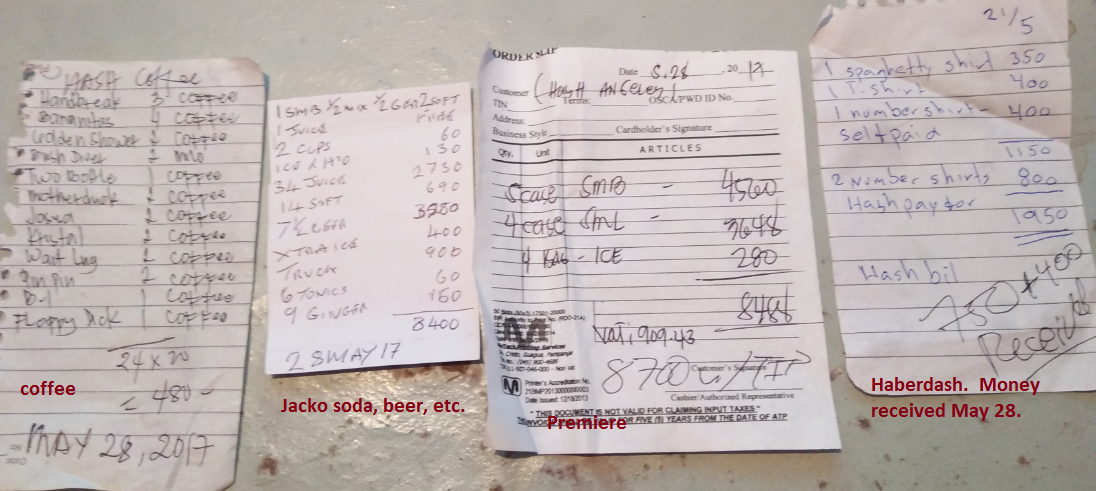 HASH Coffee
Handbreak 3 coffee
Bananitas 4 coffee
Golden Shower 2 coffee
Brush Diver 2 milo
Two Bottle 1 coffee
motherduck 2 coffee
Josua 2 coffee
Kristal 2 coffee
Wait Lng 2 coffee
2 coffee
D-1 1 coffee
Floppy Dick 1 coffee
24 x 20
480-
MAY 28, 2017
coffee
1 SMB 1/2 mix 1/2 GER 2 SOFT
FREE
1 JUICE 60
2 CUPS 130
ICE & H2O 2730
34 JUICE 690
14 SOFT 3580
7 1/2 GER 400
XTRA ICE 900
TRUCK 60
6 TONICS
9 GINGER
8400
28 MAY 17
Jacko soda, beer, etc.
ORDER SLIP
Date 5.28, 2017
Customer (Hash ANGELES)
TIN Terms: OSCA/PWD ID No.
Address:
Business Style Cardholder's Signature
Qty. Unit ARTICLES
5 case SMB - 4560
4 case SML - 3648
4 BAG - ICE 280
8488
Vat: 909.43
8700 w/TIP
Customer's Signature
Cashier/Authorized Representative
Printer's Accreditation No.
Date Issued: 12/18/2013
"THIS DOCUMENT IS NOT VALID FOR CLAIMING INPUT TAXES"
FOR FIVE (5) YEARS FROM THE DATE OF ATP
Premiere
21/5
1 spaghetty shirt 350
1 T-shirt 400
1 number shirt- 400
selfpaid
1150
2 Number shirts 800
Hash pay for
1950
Hash bil
750+400
Received
Haberdash. Money
received May 28.